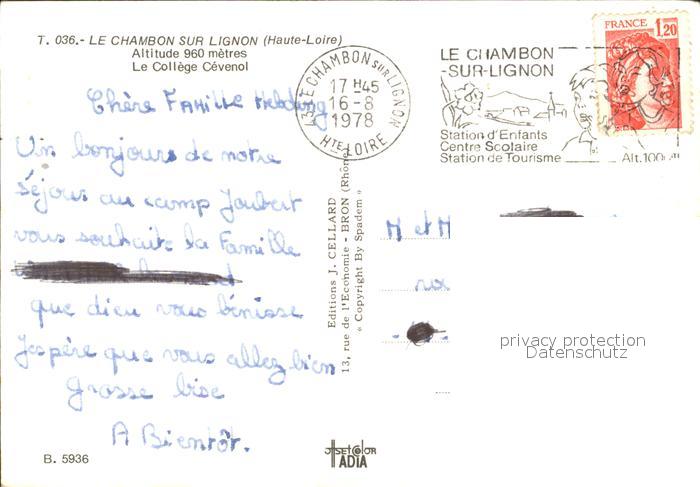 T. 036.- LE CHAMBON SUR LIGNON (Haute-Loire)
Altitude 960 mètres
Le Collège Cévenol
Chère FAMILLE
Un bonjour de notre
séjour au camp Joubert
vous souhaite la Famille
que dieu vous bénisse
J'espère que vous allez bien
Grosse bise
A Bientôt.
B. 5936
Editions J. CELLARD
13, rue de l'Economie - BRON (Rhône)
« Copyright By Spadem »
43 LE CHAMBON SUR LIGNON
17 H45
16-8
1978
HTE LOIRE
LE CHAMBON
-SUR-LIGNON
Station d'Enfants
Centre Scolaire
Station de Tourisme
Alt. 100
FRANCE 1,20
M et M
privacy protection
Datenschutz
JETSCOLOR
ADIA